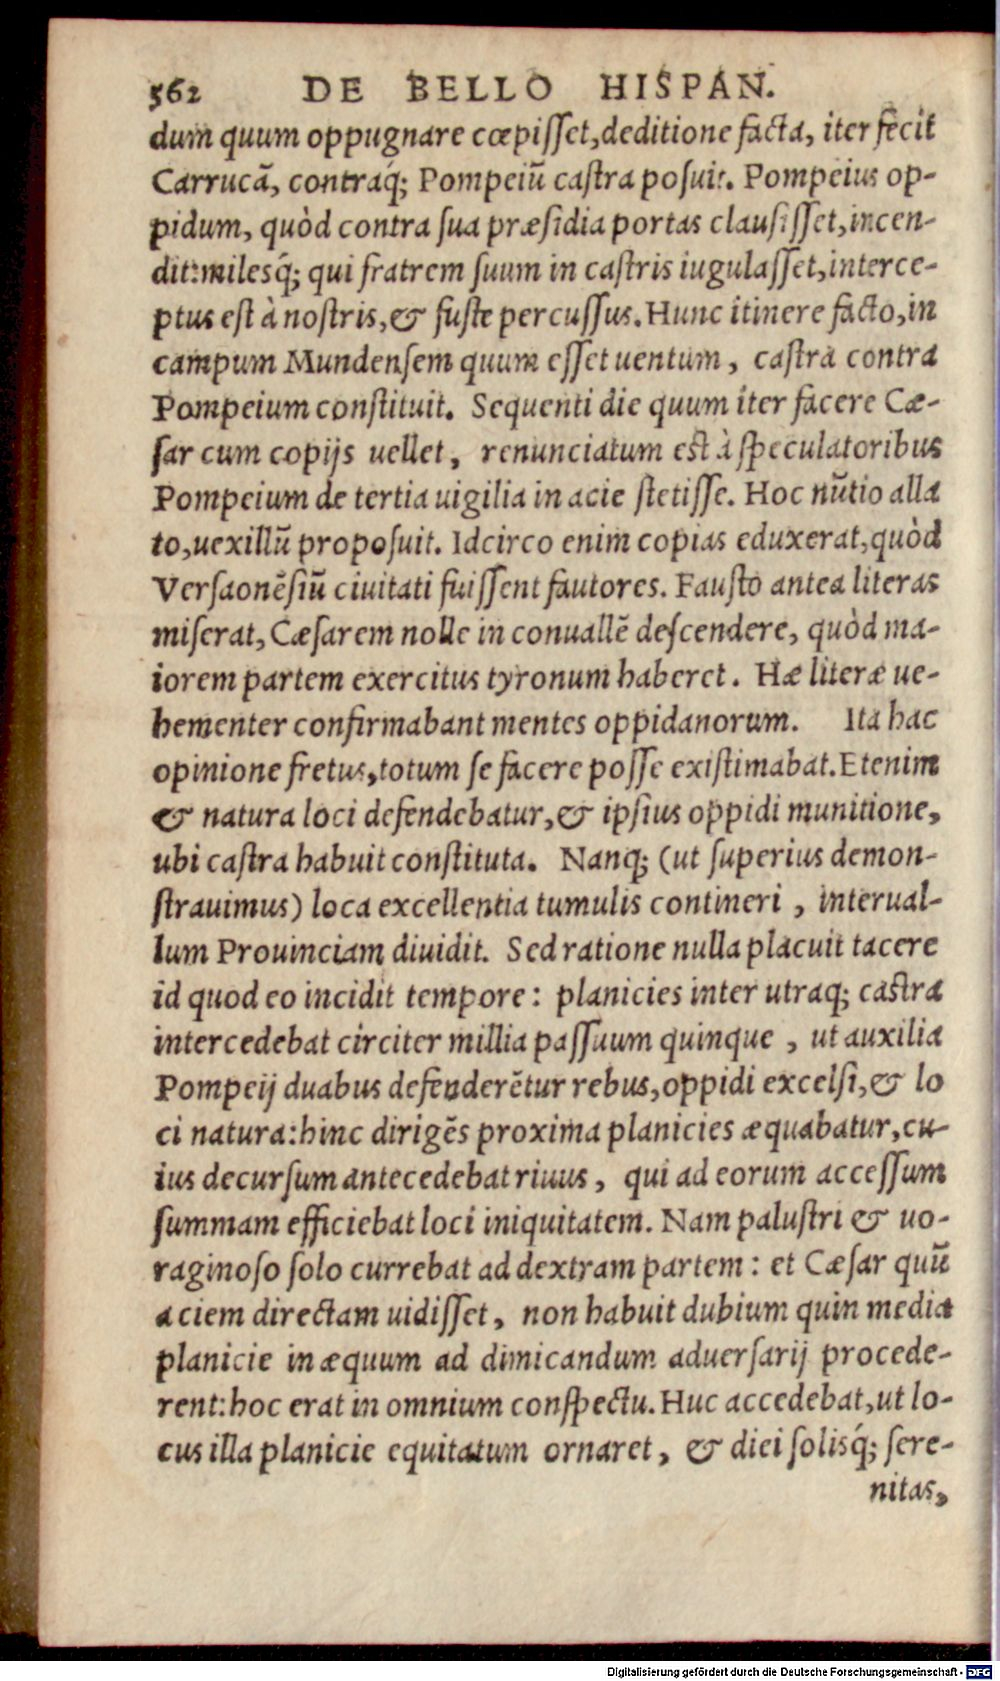 562 DE BELLO HISPAN.
dum quum oppugnare cœpiſſet, deditione facta, iter fecit
Carrucã, contraq́; Pompeiũ caſtra poſuit. Pompeius op-
pidum, quòd contra ſua præſidia portas clauſiſſet, incen-
dit: milesq́; qui fratrem ſuum in caſtris iugulaſſet, interce-
ptus eſt à noſtris, & fuſte percuſſus. Hunc itinere facto, in
campum Mundenſem quum eſſet uentum, caſtra contra
Pompeium conſtituit. Sequenti die quum iter facere Cæ-
ſar cum copijs uellet, renunciatum eſt à ſpeculatoribus
Pompeium de tertia uigilia in acie ſtetiſſe. Hoc nũtio alla
to, uexillũ propoſuit. Idcirco enim copias eduxerat, quòd
Verſaonẽſiũ ciuitati fuiſſent fautores. Fauſto antea literas
miſerat, Cæſarem nolle in conuallẽ deſcendere, quòd ma-
iorem partem exercitus tyronum haberet. Hæ literæ ue-
hementer confirmabant mentes oppidanorum. Ita hac
opinione fretus, totum ſe facere poſſe exiſtimabat. Etenim
& natura loci defendebatur, & ipſius oppidi munitione,
ubi caſtra habuit conſtituta. Nanq; (ut ſuperius demon-
ſtrauimus) loca excellentia tumulis contineri, interual-
lum Prouinciam diuidit. Sed ratione nulla placuit tacere
id quod eo incidit tempore: planicies inter utraq; caſtra
intercedebat circiter millia paſſuum quinque, ut auxilia
Pompeij duabus defenderẽtur rebus, oppidi excelſi, & lo
ci natura: hinc dirigẽs proxima planicies æquabatur, cu-
ius decurſum antecedebat riuus, qui ad eorum acceſſum
ſummam efficiebat loci iniquitatem. Nam paluſtri & uo-
raginoſo ſolo currebat ad dextram partem: et Cæſar quũ
aciem directam uidiſſet, non habuit dubium quin media
planicie in æquum ad dimicandum aduerſarij procede-
rent: hoc erat in omnium conſpectu. Huc accedebat, ut lo-
cus illa planicie equitatum ornaret, & diei ſolisq́; ſere-
nitas,
Digitalisierung gefördert durch die Deutsche Forschungsgemeinschaft - DFG